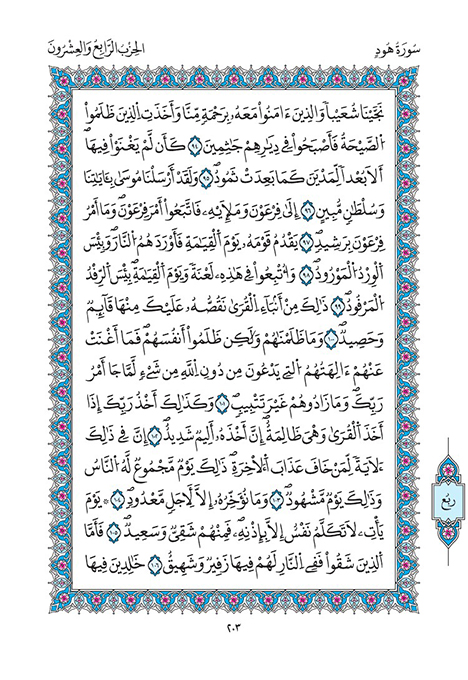 سُورَةُ هُودٍ
الحِزبُ الرَّابِعُ وَالعِشْرُونَ
نَجَّيْنَا شُعَيْباً وَالذِينَ ءَامَنُوا مَعَهُۥ بِرَحْمَةٍ مِّنَّا وَأَخَذَتِ الذِينَ ظَلَمُوا
الصَّيْحَةُ فَأَصْبَحُوا فِي دِيٰرِهِمْ جَٰثِمِينَ ٩٤ كَأَن لَّمْ يَغْنَوْا فِيهَا
أَلَا بُعْداً لِّمَدْيَنَ كَمَا بَعِدَتْ ثَمُودُ ٩٥ وَلَقَدْ أَرْسَلْنَا مُوسَىٰ بِـَٔايَٰتِنَا
وَسُلْطَٰنٍ مُّبِينٍ ٩٦ إِلَىٰ فِرْعَوْنَ وَمَلَإِيْهِۦ فَاتَّبَعُوا أَمْرَ فِرْعَوْنَ وَمَا أَمْرُ
فِرْعَوْنَ بِرَشِيدٍ ٩٧ يَقْدُمُ قَوْمَهُۥ يَوْمَ الْقِيَٰمَةِ فَأَوْرَدَهُمُ النَّارَ وَبِيسَ
الْوِرْدُ الْمَوْرُودُ ٩٨ وَأُتْبِعُوا فِي هَٰذِهِۦ لَعْنَةً وَيَوْمَ الْقِيَٰمَةِ بِيسَ الرِّفْدُ
الْمَرْفُودُ ٩٩ ذَٰلِكَ مِنْ أَنۢبَآءِ الْقُرَىٰ نَقُصُّهُۥ عَلَيْكَ مِنْهَا قَآئِمٌ
وَحَصِيدٌ ١٠٠ وَمَا ظَلَمْنَٰهُمْ وَلَٰكِن ظَلَمُوا أَنفُسَهُمْ فَمَا أَغْنَتْ
عَنْهُمُ ءَالِهَتُهُمُ التِي يَدْعُونَ مِن دُونِ اللَّهِ مِن شَيْءٍ لَّمَّا جَا أَمْرُ
رَبِّكَ وَمَا زَادُوهُمْ غَيْرَ تَتْبِيبٍ ١٠١ وَكَذَٰلِكَ أَخْذُ رَبِّكَ إِذَا
أَخَذَ الْقُرَىٰ وَهْيَ ظَٰلِمَةٌ إِنَّ أَخْذَهُۥ أَلِيمٌ شَدِيدٌ ١٠٢ إِنَّ فِي ذَٰلِكَ
لَأٓيَةً لِّمَنْ خَافَ عَذَابَ الْأٓخِرَةِ ذَٰلِكَ يَوْمٌ مَّجْمُوعٌ لَّهُ النَّاسُ
وَذَٰلِكَ يَوْمٌ مَّشْهُودٌ ١٠٣ وَمَا نُؤَخِّرُهُۥ إِلَّا لِأَجَلٍ مَّعْدُودٍ ١٠٤ يَوْمَ
يَأْتِۦ لَا تَكَلَّمُ نَفْسٌ إِلَّا بِإِذْنِهِۦ فَمِنْهُمْ شَقِيٌّ وَسَعِيدٌ ١٠٥ فَأَمَّا
الذِينَ شَقُوا فَفِي النَّارِ لَهُمْ فِيهَا زَفِيرٌ وَشَهِيقٌ ١٠٦ خَٰلِدِينَ فِيهَا
ربع
٢٠٣